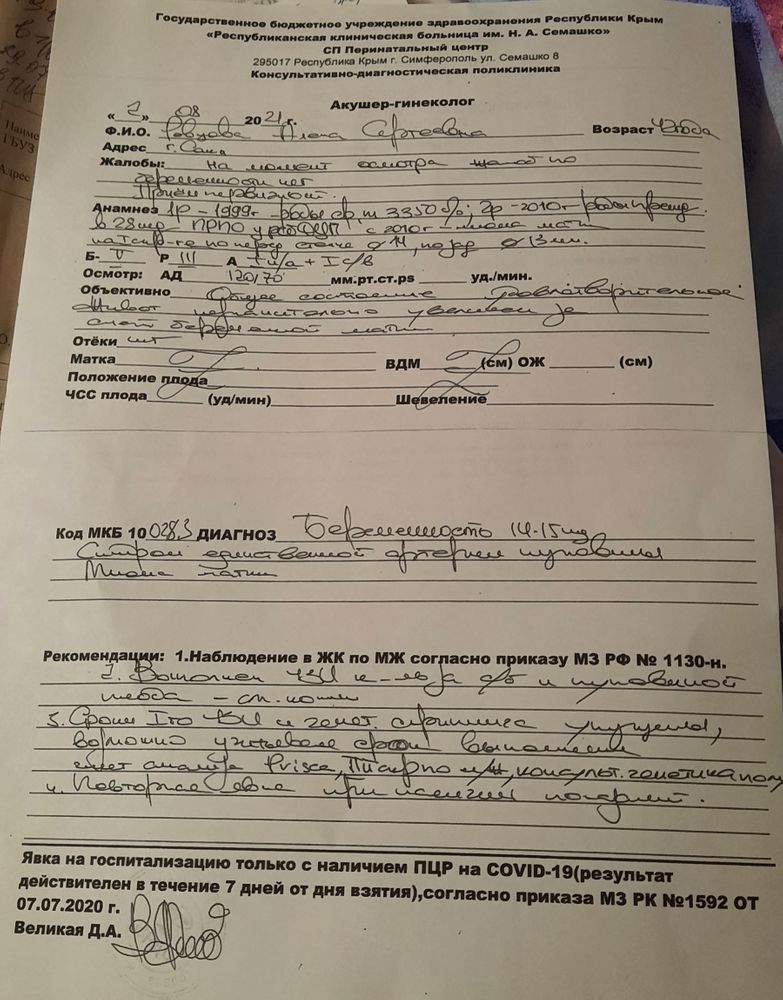 Государственное бюджетное учреждение здравоохранения Республики Крым
«Республиканская клиническая больница им. Н. А. Семашко»
СП Перинатальный центр
295017 Республика Крым г. Симферополь ул. Семашко 8
Консультативно-диагностическая поликлиника
Акушер-гинеколог
« 2 » 08 2021 г.
Ф.И.О. Алена Сергеевна Возраст 42года
Адрес г. Саки
Жалобы: на момент осмотра жалоб по
беременности нет
Приём первичный.
Анамнез 1р - 1999г - роды 3350 2р - 2010г - роды прежд.
в 28нед ПРПО с 2010г - миома матки
по перед стенке d 14, по зад d 13 мм.
Б- V Р III А I м/а + I с/в
Осмотр: АД 120/70 мм.рт.ст.ps уд./мин.
Объективно Общее состояние удовлетворительное
Живот увеличен за
счет беременной матки
Отёки нет
Матка ВДМ (см) ОЖ (см)
Положение плода
ЧСС плода (уд/мин) Шевеление
Код МКБ 10 028.3 ДИАГНОЗ Беременность 14-15 нед
Синдром единственной артерии пуповины
Миома матки
Рекомендации: 1.Наблюдение в ЖК по МЖ согласно приказу МЗ РФ № 1130-н.
2. Выполнен УЗИ и пуповиной
плода
3. Сроки Iго УЗИ и генет. скрининга упущены,
возможно учитывая срок выполнения
генет анализа Prisca, консульт. генетика
4. Повторная явка при наличии показаний.
Явка на госпитализацию только с наличием ПЦР на COVID-19(результат
действителен в течение 7 дней от дня взятия),согласно приказа МЗ РК №1592 ОТ
07.07.2020 г.
Великая Д.А.